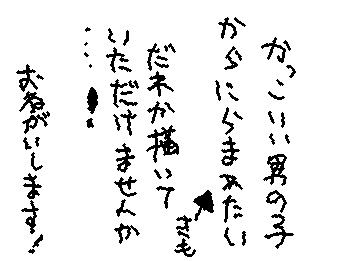 かっこいい男の子
からにらまれたい
きも
だれか描いて
いただけませんか
…
おねがいします!